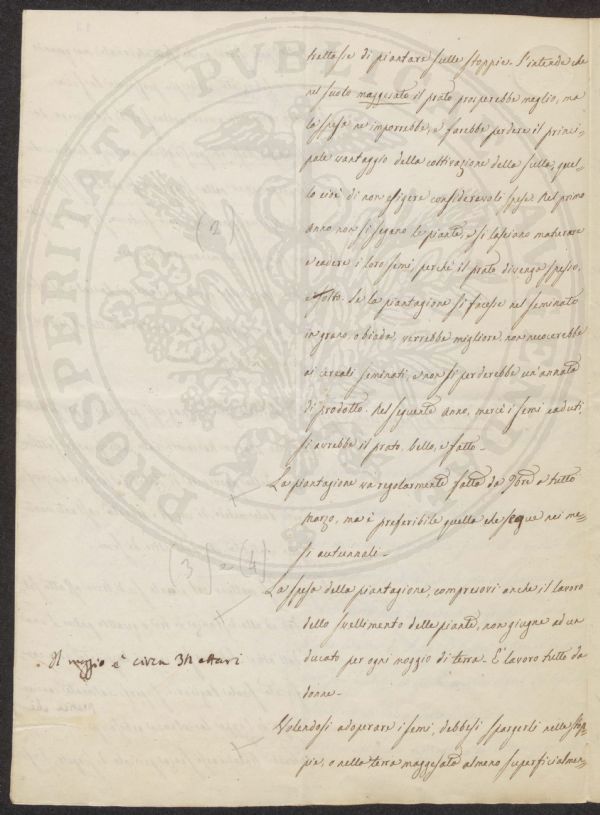 trattasse di piantare sulle stoppie. S'intende che
nel suolo maggesato il prato prospererebbe meglio, ma
la spesa ne imporrebbe, e farebbe perdere il princi-
pale vantaggio della coltivazione della sulla, quel-
lo cioè di non esigere considerevoli spese. Nel primo
anno non si segano le piante, e si lasciano maturare
e cadere i loro semi, perchè il prato divenga spesso,
e folto. Se la piantagione si facesse nel seminato
(2)
in grano, o biada, verrebbe migliore, non nuocerebbe
ai cereali seminati, e non si perderebbe un'annata
di prodotto. Nel seguente anno, mercè i semi caduti,
si avrebbe il prato bello, e fatto.
La piantagione va regolarmente fatta da 9bre a tutto
Marzo, ma è preferibile quella che segue nei me-
si autunnali.
(3) e (4)
La spesa della piantagione, compresovi anche il lavoro
dello svellimento delle piante, non giugne ad un
ducato per ogni moggio di terra. È lavoro tutto da
donne.
Il moggio è circa 3/1 ettari
Volendosi adoperare i semi, debbesi spargerli nella stop-
pia, o nella terra maggesata almeno superficialmen-
PROSPERITATI PUBLICAE